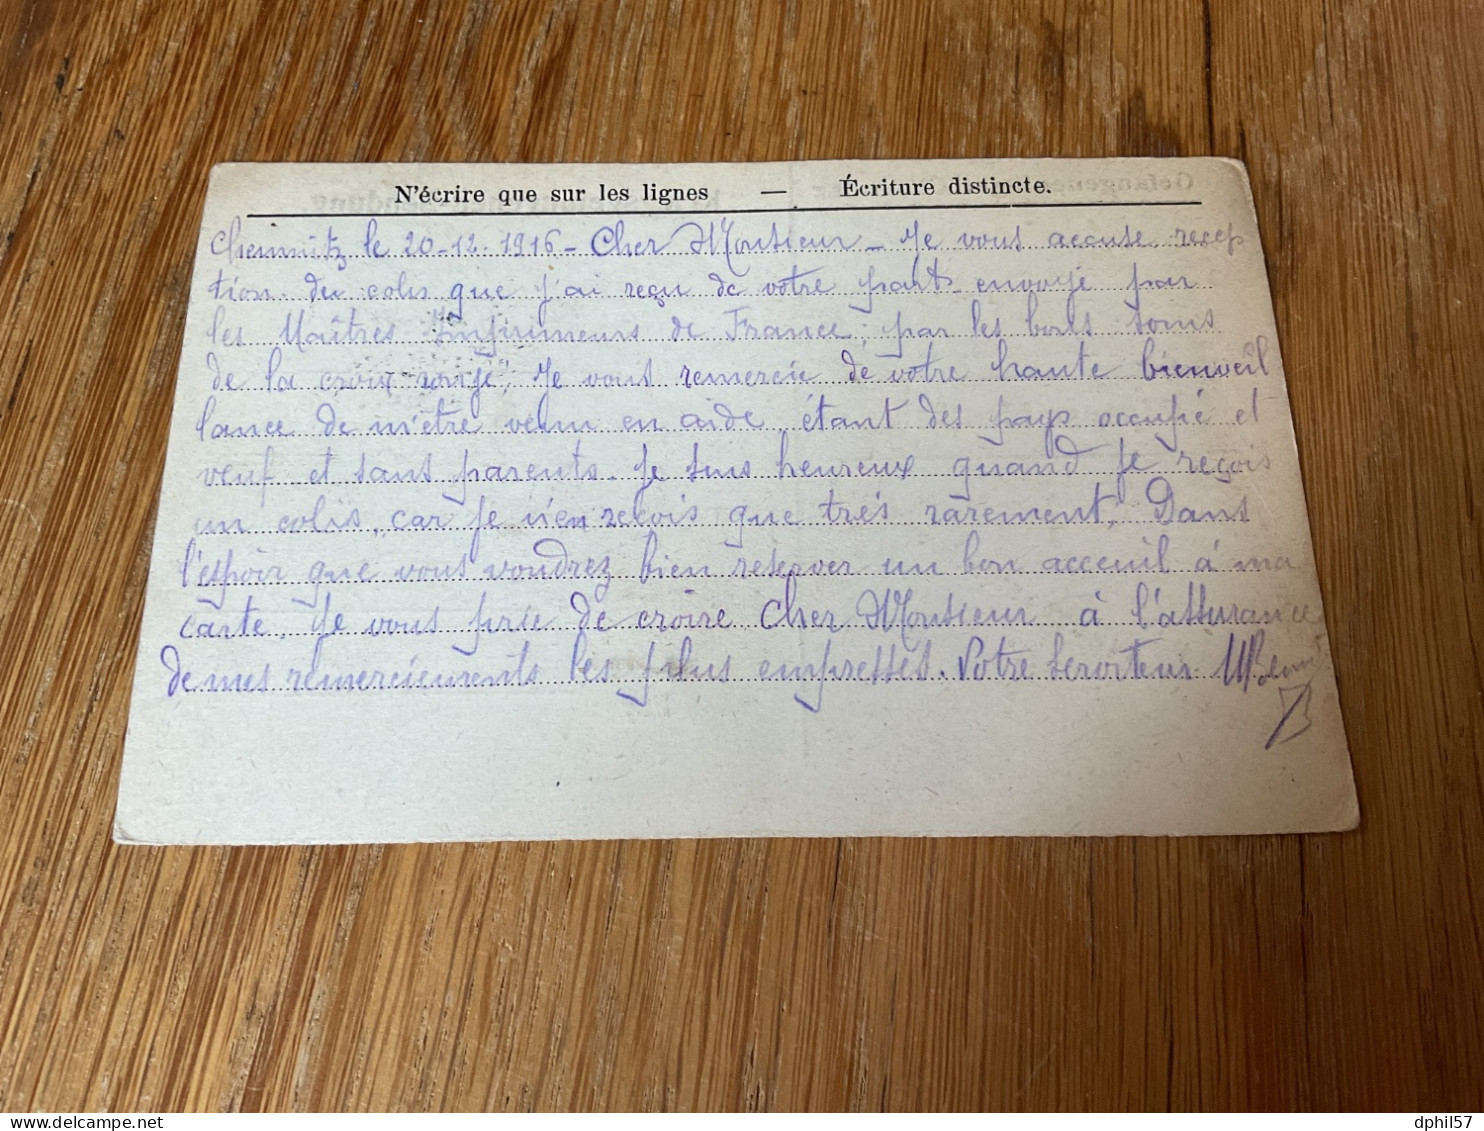 N'écrire que sur les lignes — Écriture distincte.
Chemnitz le 20-12-1916 - Cher Monsieur - Je vous accuse recep
tion du colis que j'ai reçu de votre part envoyé par
les Maîtres Imprimeurs de France, par les bons soins
de la croix-rouge, Je vous remercie de votre haute bienveil
lance de m'être venu en aide, étant des pays occupé et
veuf et sans parents. Je suis heureux quand je reçois
un colis, car je n'en recois que trés rarement. Dans
l'espoir que vous voudrez bien reserver un bon acceuil à ma
carte, Je vous prie de croire Cher Monsieur à l'assurance
de mes remerciements les plus empressés. Votre serviteur
dphil57